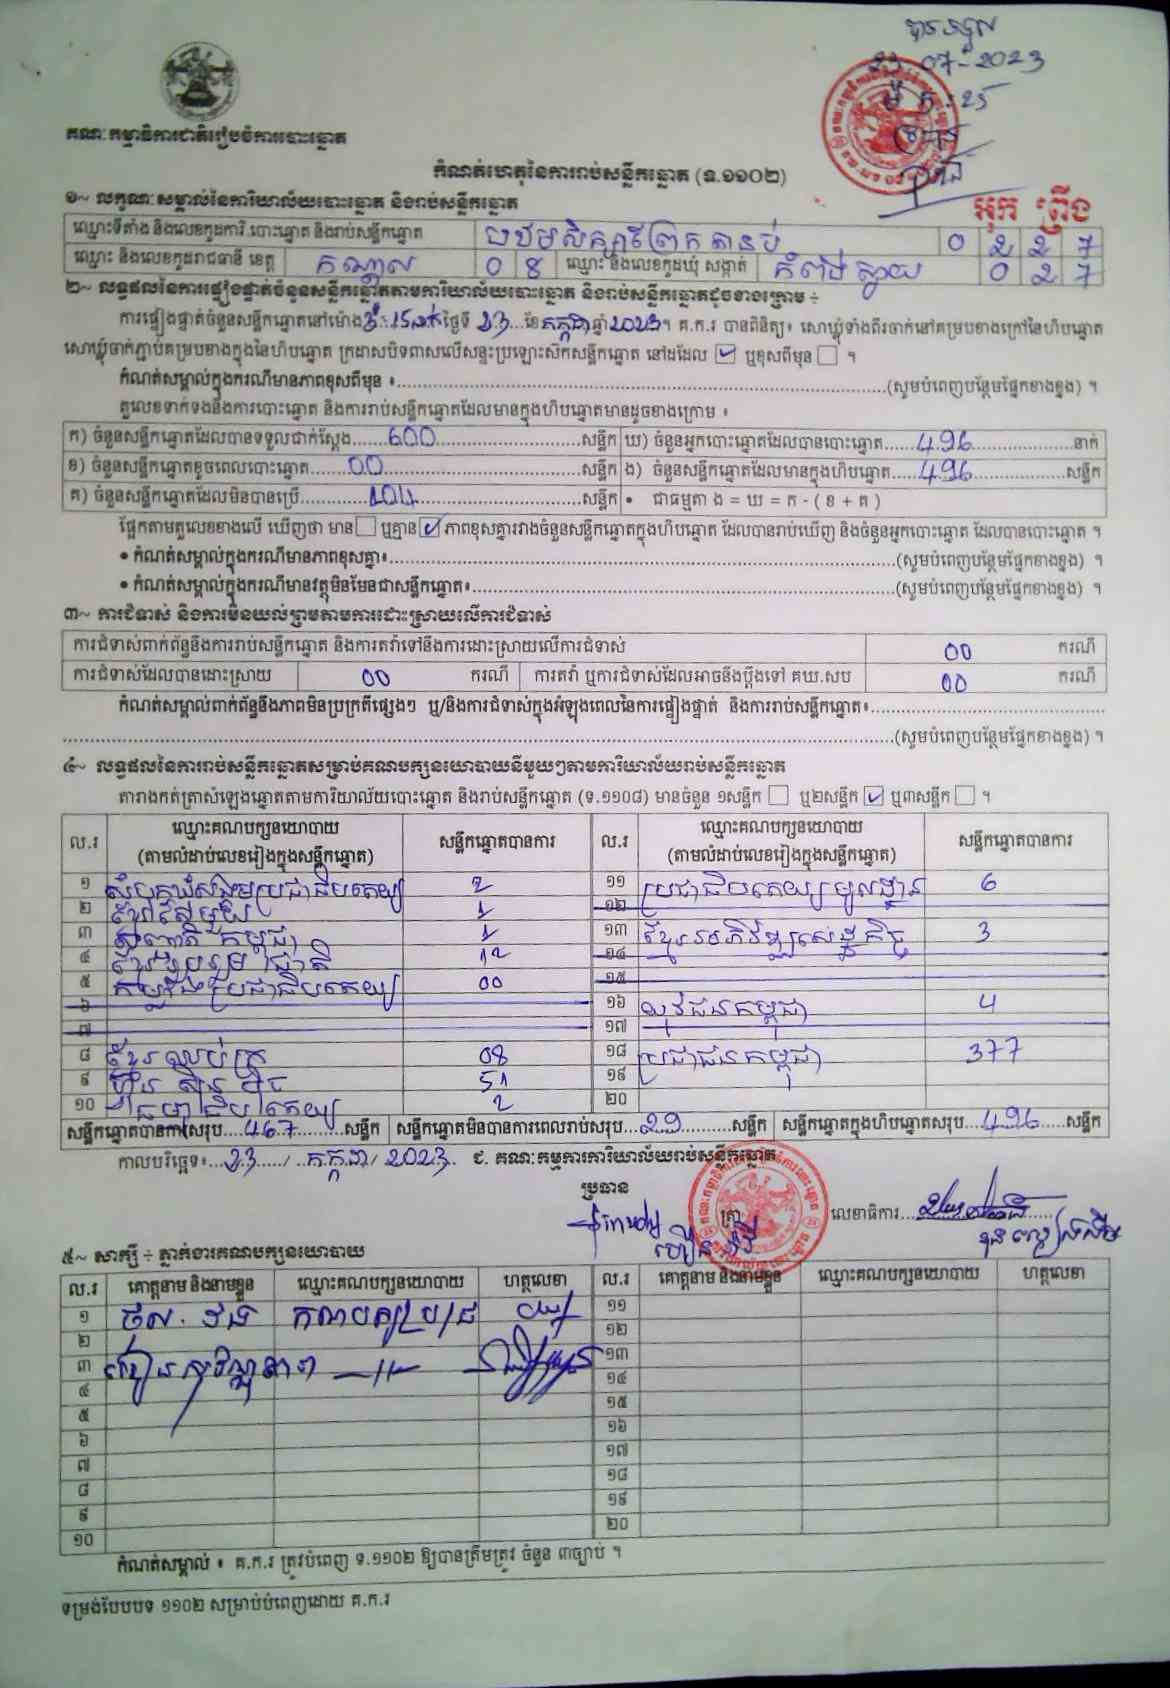 បានទទួល
23-07-2023
គណៈកម្មាធិការជាតិរៀបចំការបោះឆ្នោត
កំណត់ហេតុនៃការរាប់សន្លឹកឆ្នោត (ទ.១១០២)
អុក ព្រឹង
១~ លក្ខណៈសម្គាល់នៃការិយាល័យបោះឆ្នោត និងរាប់សន្លឹកឆ្នោត
ឈ្មោះទីតាំង និងលេខកូដការិ.បោះឆ្នោត និងរាប់សន្លឹកឆ្នោត បឋមសិក្សាព្រែកតានប់ 0 2 2 7
ឈ្មោះ និងលេខកូដរាជធានី ខេត្ត កណ្តាល 0 8 ឈ្មោះ និងលេខកូដឃុំ សង្កាត់ កំពង់ស្វាយ 0 2 7
២~ លទ្ធផលនៃការផ្ទៀងផ្ទាត់ចំនួនសន្លឹកឆ្នោតតាមការិយាល័យបោះឆ្នោត និងរាប់សន្លឹកឆ្នោតដូចខាងក្រោម ÷
ការផ្ទៀងផ្ទាត់ចំនួនសន្លឹកឆ្នោតនៅម៉ោង 3:15នាទី ថ្ងៃទី 23 ខែ កក្កដា ឆ្នាំ 2023។ គ.ក.រ បានពិនិត្យ៖ សោឃ្លុំទាំងពីរចាក់នៅគម្របខាងក្រៅនៃហិបឆ្នោត
សោឃ្លុំចាក់ភ្ជាប់គម្របខាងក្នុងនៃហិបឆ្នោត ក្រដាសបិទពាសលើសន្ទះប្រឡោះស៊កសន្លឹកឆ្នោត នៅដដែល ☑ ឬខុសពីមុន ☐ ។
កំណត់សម្គាល់ក្នុងករណីមានភាពខុសពីមុន ៖ (សូមបំពេញបន្ថែមផ្នែកខាងខ្នង) ។
តួលេខទាក់ទងនឹងការបោះឆ្នោត និងការរាប់សន្លឹកឆ្នោតដែលមានក្នុងហិបឆ្នោតមានដូចខាងក្រោម ៖
ក) ចំនួនសន្លឹកឆ្នោតដែលបានទទួលជាក់ស្តែង 600 សន្លឹក ឃ) ចំនួនអ្នកបោះឆ្នោតដែលបានបោះឆ្នោត 496 នាក់
ខ) ចំនួនសន្លឹកឆ្នោតខូចពេលបោះឆ្នោត 00 សន្លឹក ង) ចំនួនសន្លឹកឆ្នោតដែលមានក្នុងហិបឆ្នោត 496 សន្លឹក
គ) ចំនួនសន្លឹកឆ្នោតដែលមិនបានប្រើ 104 សន្លឹក • ជាធម្មតា ង = ឃ = ក - ( ខ + គ )
ផ្អែកតាមតួលេខខាងលើ ឃើញថា មាន ☐ ឬគ្មាន ☑ ភាពខុសគ្នារវាងចំនួនសន្លឹកឆ្នោតក្នុងហិបឆ្នោត ដែលបានរាប់ឃើញ និងចំនួនអ្នកបោះឆ្នោត ដែលបានបោះឆ្នោត ។
• កំណត់សម្គាល់ក្នុងករណីមានភាពខុសគ្នា៖ (សូមបំពេញបន្ថែមផ្នែកខាងខ្នង) ។
• កំណត់សម្គាល់ក្នុងករណីមានវត្ថុមិនមែនជាសន្លឹកឆ្នោត៖ (សូមបំពេញបន្ថែមផ្នែកខាងខ្នង) ។
៣~ ការជំទាស់ និងការមិនយល់ព្រមតាមការដោះស្រាយលើការជំទាស់
ការជំទាស់ពាក់ព័ន្ធនឹងការរាប់សន្លឹកឆ្នោត និងការតវ៉ាទៅនឹងការដោះស្រាយលើការជំទាស់ 00 ករណី
ការជំទាស់ដែលបានដោះស្រាយ 00 ករណី ការតវ៉ា ឬការជំទាស់ដែលអាចនឹងប្តឹងទៅ គឃ.សប 00 ករណី
កំណត់សម្គាល់ពាក់ព័ន្ធនឹងភាពមិនប្រក្រតីផ្សេងៗ ឬ/និងការជំទាស់ក្នុងអំឡុងពេលនៃការផ្ទៀងផ្ទាត់ និងការរាប់សន្លឹកឆ្នោត៖
(សូមបំពេញបន្ថែមផ្នែកខាងខ្នង) ។
៤~ លទ្ធផលនៃការរាប់សន្លឹកឆ្នោតសម្រាប់គណបក្សនយោបាយនីមួយៗតាមការិយាល័យរាប់សន្លឹកឆ្នោត
តារាងកត់ត្រាសំឡេងឆ្នោតតាមការិយាល័យបោះឆ្នោត និងរាប់សន្លឹកឆ្នោត (ទ.១១០៨) មានចំនួន ១សន្លឹក ☐ ឬ២សន្លឹក ☑ ឬ៣សន្លឹក ☐ ។
ល.រ ឈ្មោះគណបក្សនយោបាយ (តាមលំដាប់លេខរៀងក្នុងសន្លឹកឆ្នោត) សន្លឹកឆ្នោតបានការ ល.រ ឈ្មោះគណបក្សនយោបាយ (តាមលំដាប់លេខរៀងក្នុងសន្លឹកឆ្នោត) សន្លឹកឆ្នោតបានការ
១ សំបុកឃ្មុំសង្គមប្រជាធិបតេយ្យ 2 ១១ ប្រជាធិបតេយ្យមូលដ្ឋាន 6
២ ខ្មែរតែមួយ 1 ១២
៣ សញ្ជាតិកម្ពុជា 1 ១៣ ខ្មែរអភិវឌ្ឍសេដ្ឋកិច្ច 3
៤ ខ្មែររួបរួមជាតិ 12 ១៤
៥ កម្លាំងប្រជាធិបតេយ្យ 00 ១៥
៦ ១៦ យុវជនកម្ពុជា 4
៧ ១៧
៨ ខ្មែរឈប់ក្រ 08 ១៨ ប្រជាជនកម្ពុជា 377
៩ ហ៊្វុនស៊ិនប៉ិច 51 ១៩
១០ ធម្មាធិបតេយ្យ 2 ២០
សន្លឹកឆ្នោតបានការសរុប 467 សន្លឹក សន្លឹកឆ្នោតមិនបានការពេលរាប់សរុប 29 សន្លឹក សន្លឹកឆ្នោតក្នុងហិបឆ្នោតសរុប 496 សន្លឹក
កាលបរិច្ឆេទ៖ 23 / កក្កដា / 2023 ជ. គណៈកម្មការការិយាល័យរាប់សន្លឹកឆ្នោត
ប្រធាន ត្រា លេខាធិការ
៥~ សាក្សី ÷ ភ្នាក់ងារគណបក្សនយោបាយ
ល.រ គោត្តនាម និងនាមខ្លួន ឈ្មោះគណបក្សនយោបាយ ហត្ថលេខា ល.រ គោត្តនាម និងនាមខ្លួន ឈ្មោះគណបក្សនយោបាយ ហត្ថលេខា
១ ១១
២ ១២
៣ —//— ១៣
៤ ១៤
៥ ១៥
៦ ១៦
៧ ១៧
៨ ១៨
៩ ១៩
១០ ២០
កំណត់សម្គាល់ ៖ គ.ក.រ ត្រូវបំពេញ ទ.១១០២ ឱ្យបានត្រឹមត្រូវ ចំនួន ៣ច្បាប់ ។
ទម្រង់បែបបទ ១១០២ សម្រាប់បំពេញដោយ គ.ក.រ